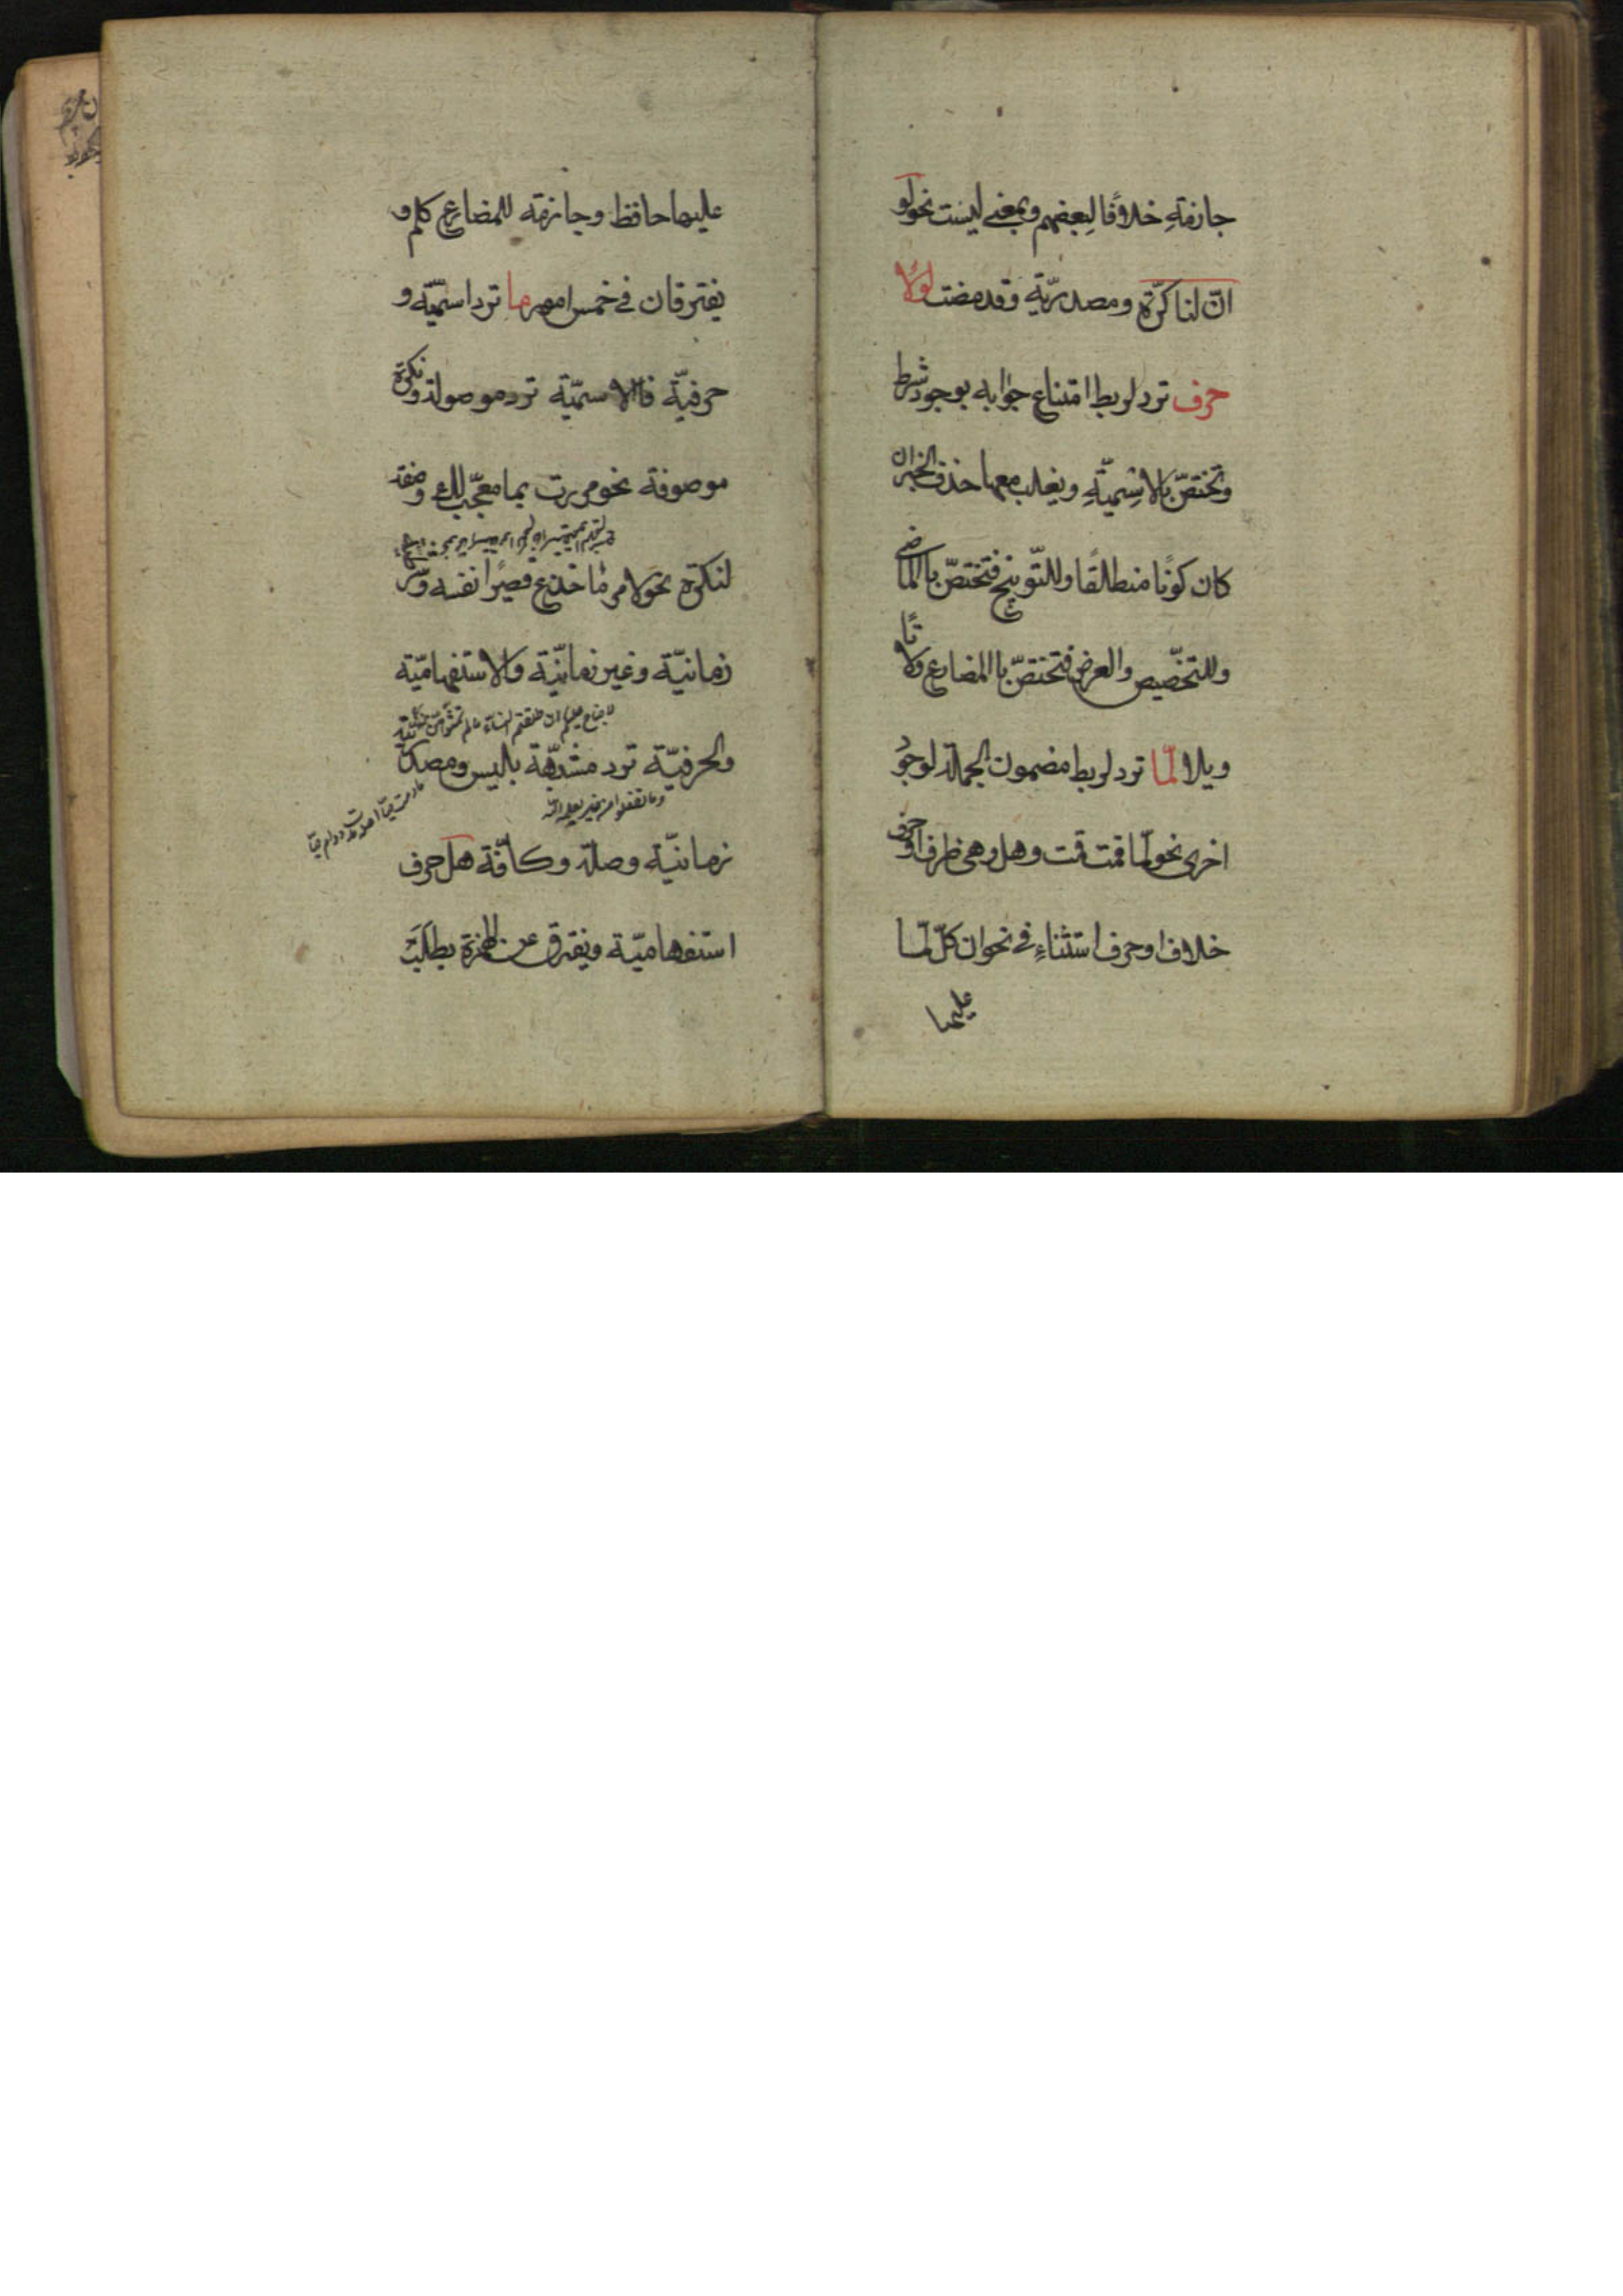 جازمة خلافًا لبعضهم وبمعنى ليت نحو لو
انّ لنا كرّة ومصدريّة وقد مضت لولا
حرف ترد لربط امتناع جوابه بوجود شرط
وتختصّ بالاسميّة ويغلب معها حذف الخبر ان
كان كونًا مطلقًا وللتّوبيخ فتختصّ بالماضي
وللتحضيض والعرض فتختصّ باالمضارع ولا تا
ويلا لمّا ترد لربط مضمون الجملة لوجود
اخرى نحو لمّا قمت قمت وهل وهى ظرف او حرف
خلاف او حرف استثناء في نحو ان كلّ لمّا
عليها
عليها حافظ وجازمة للمضارع كلم و
يفترقان في خمس امور ما ترد اسميّة و
حرفيّة فالاسميّة ترد موصولة ونكرة
موصوفة نحو مررت بما معجب لك وصفة
لنكرة نحو لامر مّا جذع قصير انفه و
زمانيّة وغير زمانيّة والاستفهاميّة
لا جناح عليكم ان طلقتم النساء ما لم تمسّوهنّ
والحرفيّة ترد مشبّهة بليس ومصدريّة
وما تفعلوا من خير يعلمه الله
زمانيّة وصلة وكافّة هل حرف
استفهاميّة ويفترق عن الهمزة بطلب